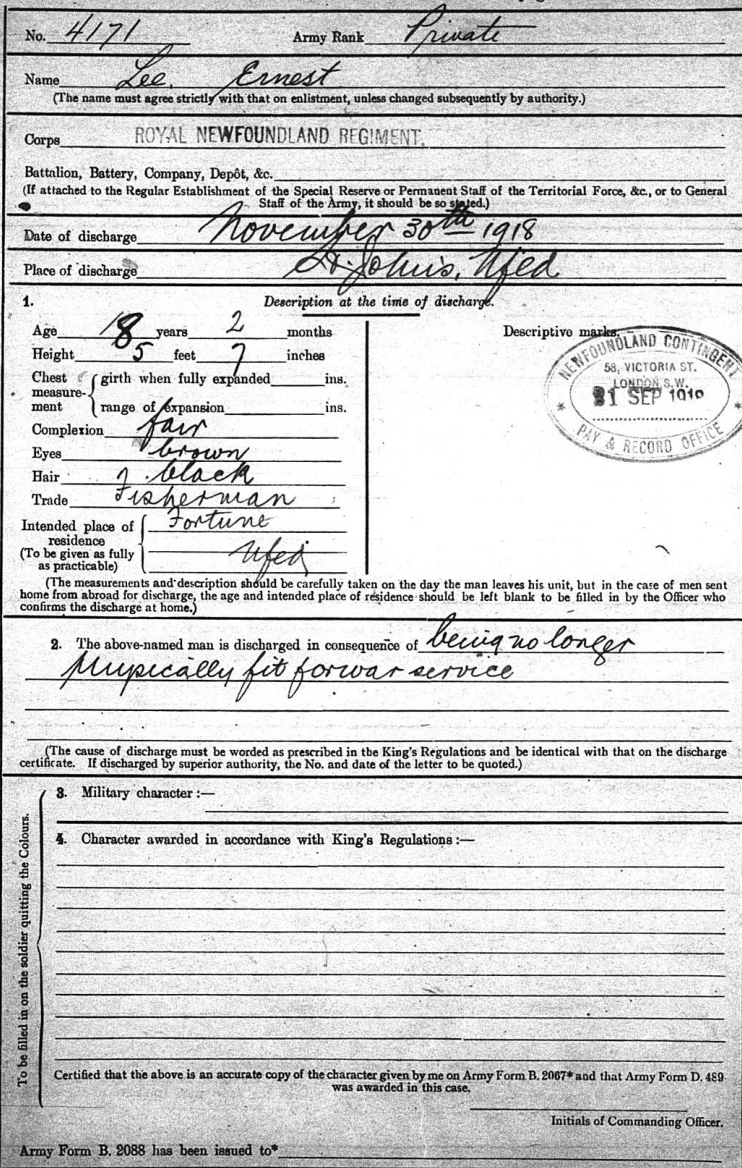 No. 4171 Army Rank Private
Name Lee. Ernest
(The name must agree strictly with that on enlistment, unless changed subsequently by authority.)
Corps ROYAL NEWFOUNDLAND REGIMENT.
Battalion, Battery, Company, Depôt, &c.
(If attached to the Regular Establishment of the Special Reserve or Permanent Staff of the Territorial Force, &c., or to General
Staff of the Army, it should be so stated.)
Date of discharge November 30th 1918
Place of discharge St. John's, Nfld
1. Description at the time of discharge.
Age 18 years 2 months
Descriptive marks.
Height 5 feet 7 inches
Chest measure-ment girth when fully expanded ins.
range of expansion ins.
Complexion fair
Eyes brown
Hair black
Trade Fisherman
Intended place of residence Fortune
(To be given as fully as practicable) Nfld
NEWFOUNDLAND CONTINGENT
58, VICTORIA ST.
LONDON, S.W.
SEP
PAY & RECORD OFFICE
(The measurements and description should be carefully taken on the day the man leaves his unit, but in the case of men sent
home from abroad for discharge, the age and intended place of residence should be left blank to be filled in by the Officer who
confirms the discharge at home.)
2. The above-named man is discharged in consequence of being no longer
physically fit for war service
(The cause of discharge must be worded as prescribed in the King's Regulations and be identical with that on the discharge
certificate. If discharged by superior authority, the No. and date of the letter to be quoted.)
To be filled in on the soldier quitting the Colours.
3. Military character :—
4. Character awarded in accordance with King's Regulations :—
Certified that the above is an accurate copy of the character given by me on Army Form B. 2067* and that Army Form D. 489
was awarded in this case.
Initials of Commanding Officer.
Army Form B. 2088 has been issued to*